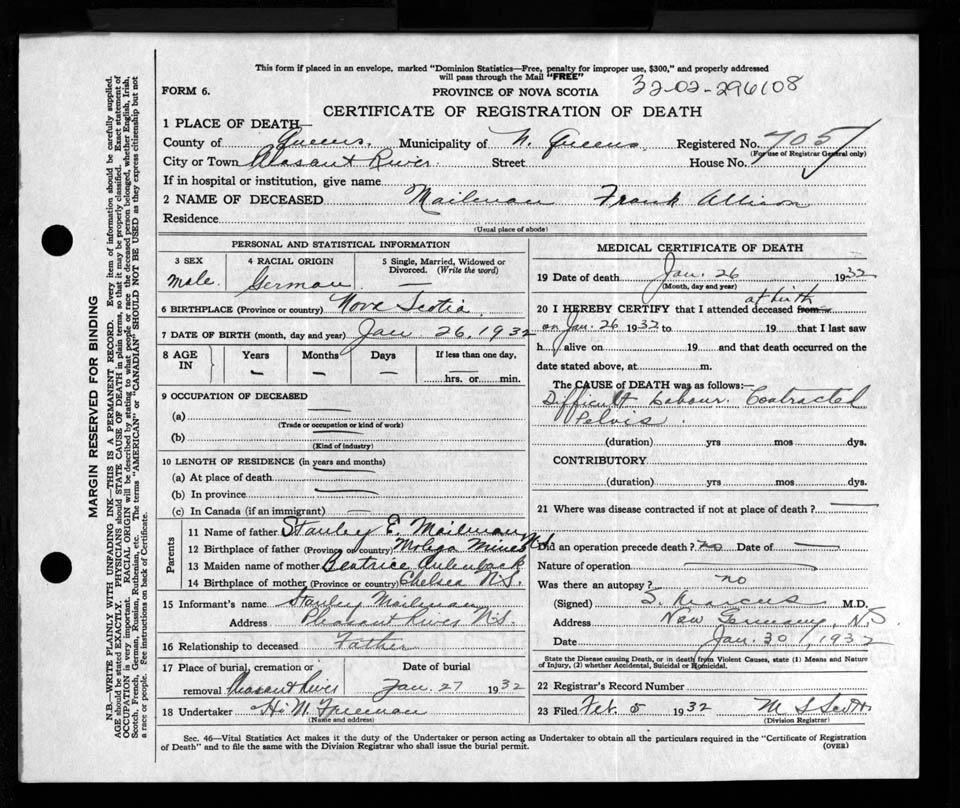 This form if placed in an envelope, marked "Dominion Statistics—Free, penalty for improper use, $300," and properly addressed
will pass through the Mail "FREE"
FORM 6.
PROVINCE OF NOVA SCOTIA
32-02-296108
CERTIFICATE OF REGISTRATION OF DEATH
1 PLACE OF DEATH—
County of Queens. Municipality of N. Queens Registered No. 705
(For use of Registrar General only)
City or Town Pleasant River Street House No.
If in hospital or institution, give name
2 NAME OF DECEASED Mailman Frank Allison
Residence
(Usual place of abode)
PERSONAL AND STATISTICAL INFORMATION
3 SEX
male
4 RACIAL ORIGIN
German
5 Single, Married, Widowed or
Divorced. (Write the word)
—
6 BIRTHPLACE (Province or country) Nova Scotia
7 DATE OF BIRTH (month, day and year) Jan 26, 1932
8 AGE
IN
Years
—
Months
—
Days
—
If less than one day,
hrs. or min.
9 OCCUPATION OF DECEASED
(a)
(Trade or occupation or kind of work)
(b)
(Kind of industry)
10 LENGTH OF RESIDENCE (in years and months)
(a) At place of death
(b) In province
(c) In Canada (if an immigrant)
Parents
11 Name of father Stanley E. Mailman
12 Birthplace of father (Province or country) Molega Mines N.S.
13 Maiden name of mother Beatrice Aulenback
14 Birthplace of mother (Province or country) Chelsea N.S.
15 Informant's name Stanley Mailman
Address Pleasant River N.S.
16 Relationship to deceased Father
17 Place of burial, cremation or removal Pleasant River
Date of burial
Jan. 27 1932
18 Undertaker H. N. Freeman
(Name and address)
MEDICAL CERTIFICATE OF DEATH
19 Date of death Jan. 26 1932
(Month, day and year)
at birth
20 I HEREBY CERTIFY that I attended deceased from
on Jan. 26 1932 to 19 that I last saw
h alive on 19 and that death occurred on the
date stated above, at m.
The CAUSE OF DEATH was as follows:—
Difficult Labour. Contracted
Pelvis.
(duration) yrs mos dys.
CONTRIBUTORY
(duration) yrs mos dys.
21 Where was disease contracted if not at place of death? —
Did an operation precede death? no Date of —
Nature of operation —
Was there an autopsy? no
(Signed) S. Marcus M.D.
Address New Germany, N.S.
Date Jan. 30/1932
State the Disease causing Death, or in death from Violent Causes, state (1) Means and Nature
of Injury, (2) whether Accidental, Suicidal or Homicidal.
22 Registrar's Record Number
23 Filed Feb 5 1932 M S Scott
(Division Registrar)
Sec. 46—Vital Statistics Act makes it the duty of the Undertaker or person acting as Undertaker to obtain all the particulars required in the "Certificate of Registration
of Death" and to file the same with the Division Registrar who shall issue the burial permit.
(OVER)
MARGIN RESERVED FOR BINDING
N.B.—WRITE PLAINLY WITH UNFADING INK—THIS IS A PERMANENT RECORD. Every item of information should be carefully supplied.
AGE should be stated EXACTLY. PHYSICIANS should STATE CAUSE OF DEATH in plain terms, so that it may be properly classified. Exact statement of
OCCUPATION is very important. RACIAL ORIGIN will be described by stating to what people or race the deceased person belonged, whether English, Irish,
Scotch, French, German, Russian, Ruthenian, etc. The terms "AMERICAN" or "CANADIAN" SHOULD NOT BE USED as they express citizenship but not
a race or people. See instructions on back of Certificate.